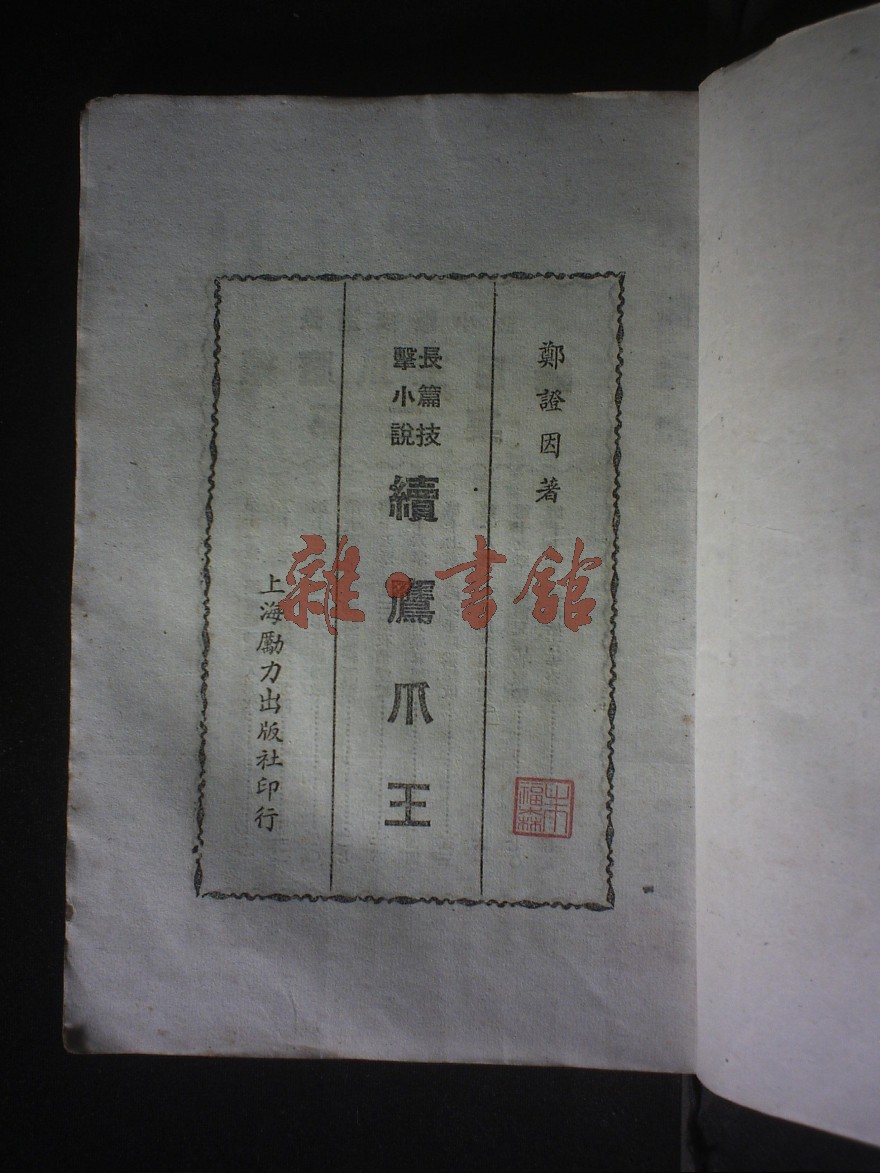 鄭證因著
長篇技
擊小說
續鷹爪王
上海勵力出版社印行
雜·書館